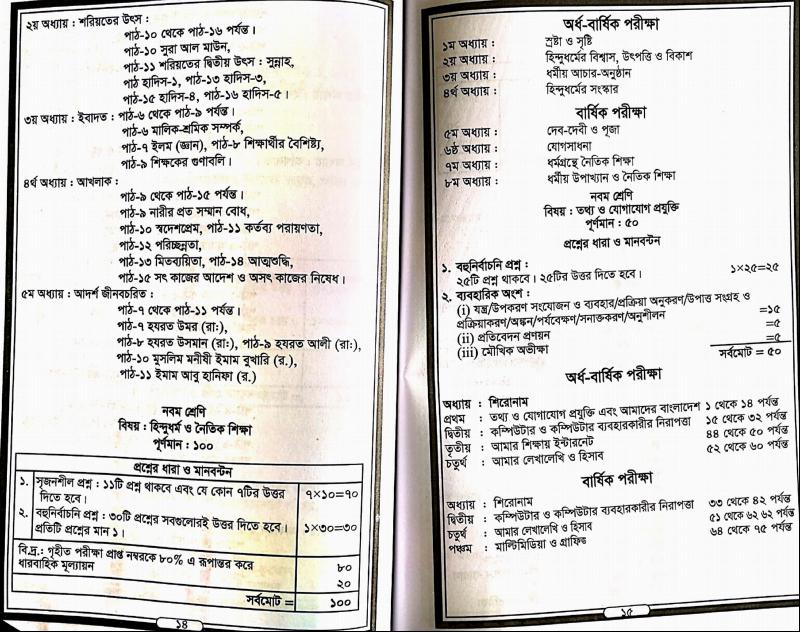 ২য় অধ্যায় : শরিয়তের উৎস :
পাঠ-১০ থেকে পাঠ-১৬ পর্যন্ত।
পাঠ-১০ সুরা আল মাউন,
পাঠ-১১ শরিয়তের দ্বিতীয় উৎস : সুন্নাহ,
পাঠ হাদিস-১, পাঠ-১৩ হাদিস-৩,
পাঠ-১৫ হাদিস-৪, পাঠ-১৬ হাদিস-৫।
৩য় অধ্যায় : ইবাদত : পাঠ-৬ থেকে পাঠ-৯ পর্যন্ত।
পাঠ-৬ মালিক-শ্রমিক সম্পর্ক,
পাঠ-৭ ইলম (জ্ঞান), পাঠ-৮ শিক্ষার্থীর বৈশিষ্ট্য,
পাঠ-৯ শিক্ষকের গুণাবলি।
৪র্থ অধ্যায় : আখলাক :
পাঠ-৯ থেকে পাঠ-১৫ পর্যন্ত।
পাঠ-৯ নারীর প্রত সম্মান বোধ,
পাঠ-১০ স্বদেশপ্রেম, পাঠ-১১ কর্তব্য পরায়ণতা,
পাঠ-১২ পরিচ্ছন্নতা,
পাঠ-১৩ মিতব্যয়িতা, পাঠ-১৪ আত্মশুদ্ধি,
পাঠ-১৫ সৎ কাজের আদেশ ও অসৎ কাজের নিষেধ।
৫ম অধ্যায় : আদর্শ জীবনচরিত :
পাঠ-৭ থেকে পাঠ-১১ পর্যন্ত।
পাঠ-৭ হযরত উমর (রা:),
পাঠ-৮ হযরত উসমান (রা:), পাঠ-৯ হযরত আলী (রা:),
পাঠ-১০ মুসলিম মনীষী ইমাম বুখারি (র.),
পাঠ-১১ ইমাম আবু হানিফা (র.)
নবম শ্রেণি
বিষয় : হিন্দুধর্ম ও নৈতিক শিক্ষা
পূর্ণমান : ১০০
প্রশ্নের ধারা ও মানবন্টন
১. সৃজনশীল প্রশ্ন : ১১টি প্রশ্ন থাকবে এবং যে কোন ৭টির উত্তর
দিতে হবে। ৭×১০=৭০
২. বহুনির্বাচনি প্রশ্ন : ৩০টি প্রশ্নের সবগুলোরই উত্তর দিতে হবে।
প্রতিটি প্রশ্নের মান ১। ১×৩০=৩০
বি.দ্র.: গৃহীত পরীক্ষা প্রাপ্ত নম্বরকে ৮০% এ রূপান্তর করে ৮০
ধারবাহিক মূল্যায়ন ২০
সর্বমোট = ১০০
১৪
অর্ধ-বার্ষিক পরীক্ষা
১ম অধ্যায় : স্রষ্টা ও সৃষ্টি
২য় অধ্যায় : হিন্দুধর্মের বিশ্বাস, উৎপত্তি ও বিকাশ
৩য় অধ্যায় : ধর্মীয় আচার-অনুষ্ঠান
৪র্থ অধ্যায় : হিন্দুধর্মের সংস্কার
বার্ষিক পরীক্ষা
৫ম অধ্যায় : দেব-দেবী ও পূজা
৬ষ্ঠ অধ্যায় : যোগসাধনা
৭ম অধ্যায় : ধর্মগ্রন্থে নৈতিক শিক্ষা
৮ম অধ্যায় : ধর্মীয় উপাখ্যান ও নৈতিক শিক্ষা
নবম শ্রেণি
বিষয় : তথ্য ও যোগাযোগ প্রযুক্তি
পূর্ণমান : ৫০
প্রশ্নের ধারা ও মানবন্টন
১. বহুনির্বাচনি প্রশ্ন :
২৫টি প্রশ্ন থাকবে। ২৫টির উত্তর দিতে হবে। ১×২৫=২৫
২. ব্যবহারিক অংশ :
(i) যন্ত্র/উপকরণ সংযোজন ও ব্যবহার/প্রক্রিয়া অনুকরণ/উপাত্ত সংগ্রহ ও
প্রক্রিয়াকরণ/অঙ্কন/পর্যবেক্ষণ/সনাক্তকরণ/অনুশীলন =১৫
(ii) প্রতিবেদন প্রণয়ন =৫
(iii) মৌখিক অভীক্ষা =৫
সর্বমোট = ৫০
অর্ধ-বার্ষিক পরীক্ষা
অধ্যায় : শিরোনাম
প্রথম : তথ্য ও যোগাযোগ প্রযুক্তি এবং আমাদের বাংলাদেশ ১ থেকে ১৪ পর্যন্ত
দ্বিতীয় : কম্পিউটার ও কম্পিউটার ব্যবহারকারীর নিরাপত্তা ১৫ থেকে ৩২ পর্যন্ত
তৃতীয় : আমার শিক্ষায় ইন্টারনেট ৪৪ থেকে ৫০ পর্যন্ত
চতুর্থ : আমার লেখালেখি ও হিসাব ৫২ থেকে ৬০ পর্যন্ত
বার্ষিক পরীক্ষা
অধ্যায় : শিরোনাম
দ্বিতীয় : কম্পিউটার ও কম্পিউটার ব্যবহারকারীর নিরাপত্তা ৩৩ থেকে ৪২ পর্যন্ত
চতুর্থ : আমার লেখালেখি ও হিসাব ৫১ থেকে ৬২ ৬২ পর্যন্ত
পঞ্চম : মাল্টিমিডিয়া ও গ্রাফিক্স ৬৪ থেকে ৭৫ পর্যন্ত
১৫